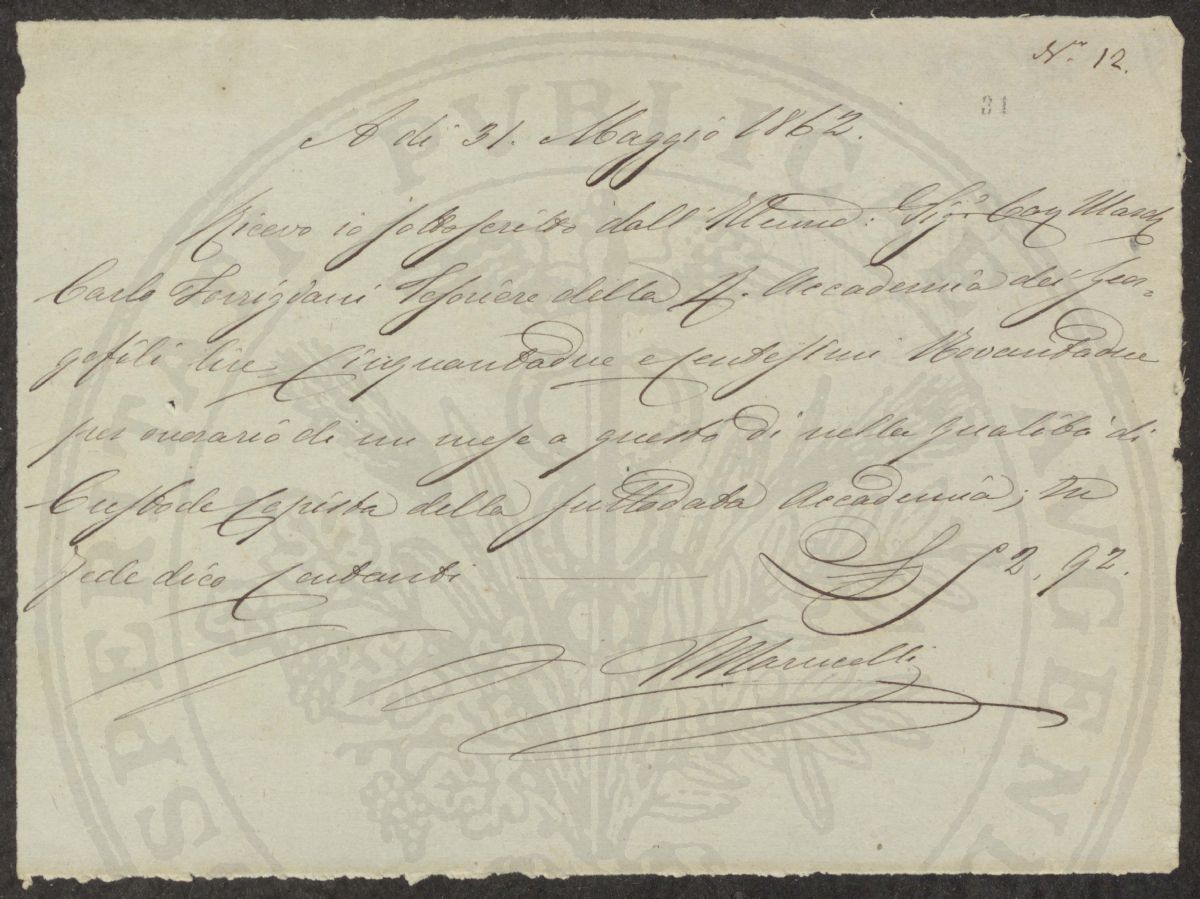 N.º 12.
31
A dì 31. Maggio 1862.
Ricevo io sottoscritto dall' Illmo: Sigr. Cav. March
Carlo Torrigiani Tesoriere della R. Accademia dei Geor=
gofili lire Cinquantadue e Centesimi Novantadue
per onorario di un mese a questo dì nella qualità di
Custode Copista della sullodata Accademia; In
fede dico Contanti ——— £ 52, 92.
Marucelli
PROSPERITATI PVBLICAE AVGENDAE